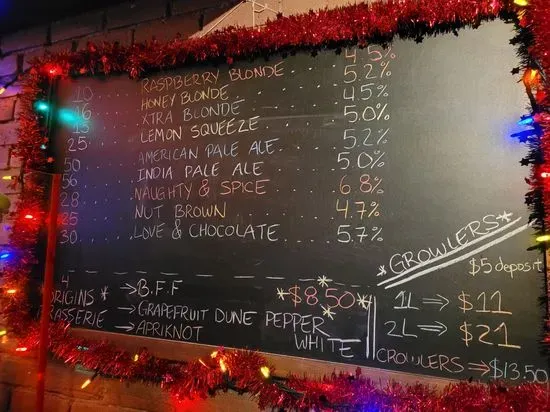 10 RASPBERRY BLONDE 4.5%
16 HONEY BLONDE 5.2%
15 XTRA BLONDE 4.5%
25 LEMON SQUEEZE 5.0%
50 AMERICAN PALE ALE 5.2%
56 INDIA PALE ALE 5.0%
28 NAUGHTY & SPICE 6.8%
25 NUT BROWN 4.7%
30 LOVE & CHOCOLATE 5.7%
*GROWLERS*
$5 deposit
1L ⇒ $11
2L ⇒ $21
CROWLERS ⇒ $13.50
4
ORIGINS * → B.F.F
BRASSERIE → GRAPEFRUIT DUNE PEPPER WHITE
→ APRIKNOT
*$8.50*